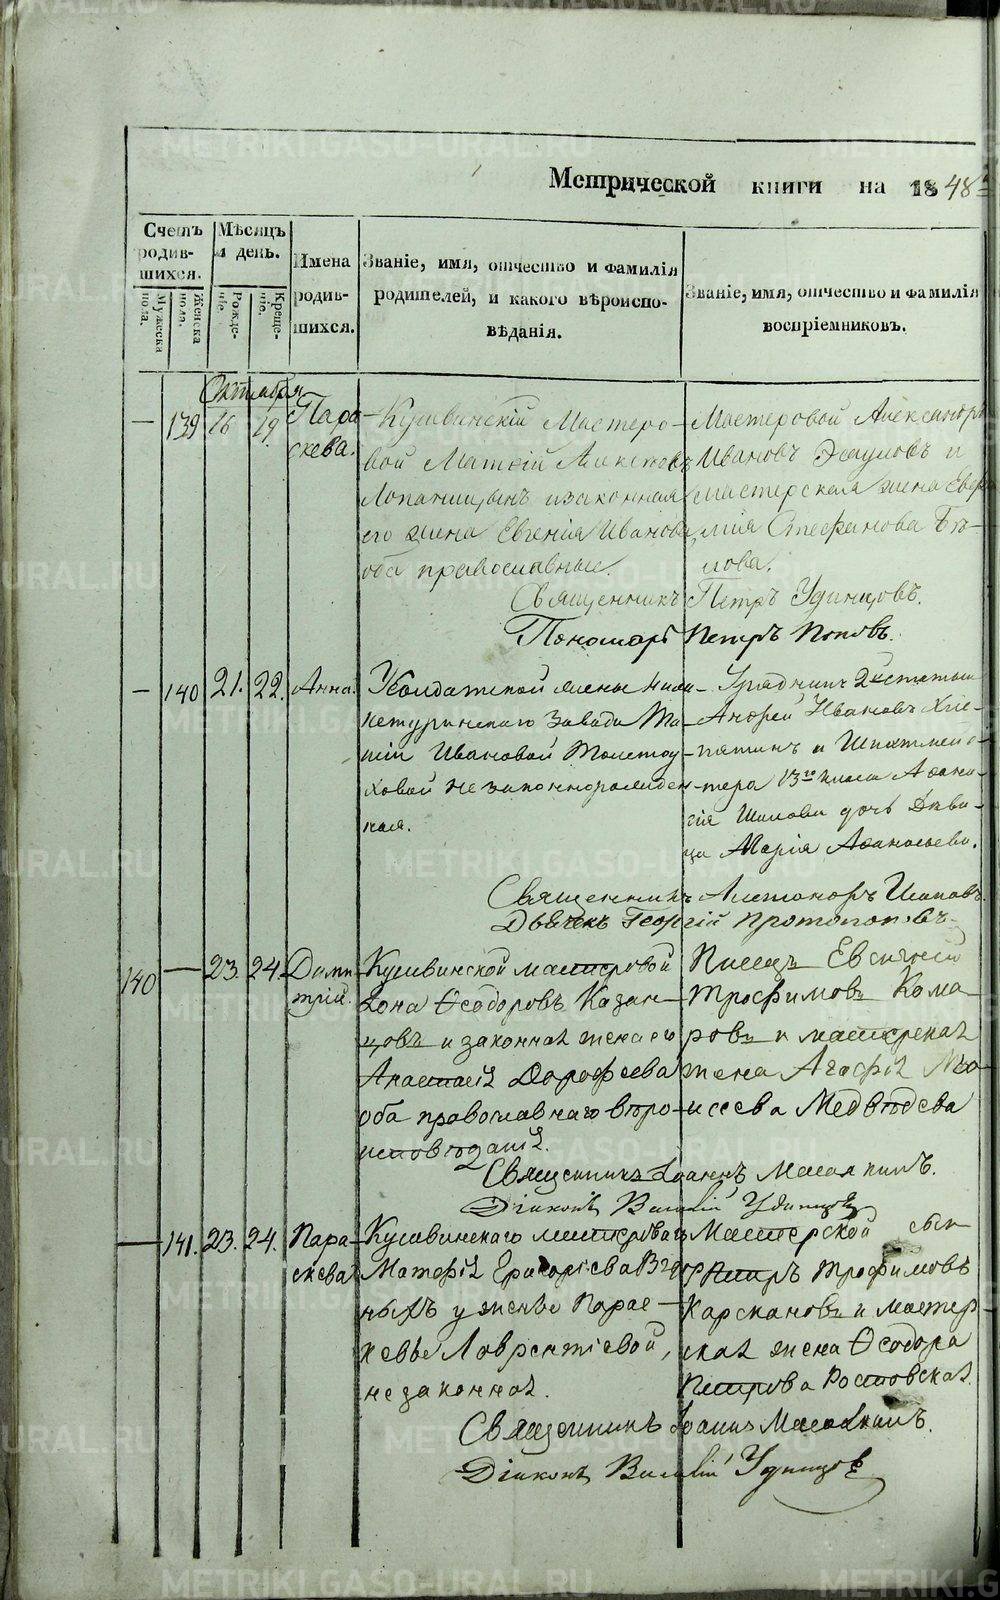 Метрической книги на 1848й
Счетъ родив-шихся.
Мужеска пола.
Женска пола.
Мѣсяцъ и день.
Рожде-ніе.
Креще-ніе.
Имена родив-шихся.
Званіе, имя, отчество и фамилія
родителей, и какого вѣроиспо-
вѣданія.
Званіе, имя, отчество и фамилія
воспріемниковъ.
Октября
— 139 16 19. Пара-
скева.
Кушвинскій Мастеро-
вой Матвій
Лопатицынъ и законная
его жена Евгенія Иванова
оба православные.
Мастеровой Александръ
Ивановъ и
мастерская жена Евфи-
мія Стефанова Бѣ-
лова.
Священникъ Петръ Удинцовъ.
Пономарь Петръ Поповъ.
— 140 21. 22. Анна.
Солдатской жены Ниж-
нетуринскаго завода Та-
тіи Ивановой Толстоу-
ховой незаконнорожден-
ная.
Урядникъ 2й статьи
Андрей Ивановъ
и Шихтмей-
стера 13го класа Афана-
сія Шилова дочь Дѣви-
ца Марія Афанасьева.
Священникъ Поповъ.
Дьячекъ Георгій Протопоповъ
140 — 23. 24. Дими-
трій.
Кушвинской мастеровой
Іона Ѳеодоровъ Казан-
цовъ и законная жена его
Анастасія Дорофеева
оба православнаго вѣро-
исповѣданія.
Писецъ Евсигней
Трофимовъ Кома-
ровъ и мастерская
жена Агафія Мо-
исеева Медвѣдева
Священникъ Іоаннъ
Діаконъ Василій Удинцовъ
— 141. 23. 24. Пара-
скева
Кушвинскаго мастероваго
Матфія Григоріева
ныхъ у жены Парас-
кевьи Лаврентіевой,
незаконная.
Мастерской сынъ
Петръ Трофимовъ
Карскановъ и мастер-
ская жена Ѳеодора
Петрова Ростовская.
Священникъ Іоаннъ
Діаконъ Василій Удинцовъ
METRIKI.GASO-URAL.RU